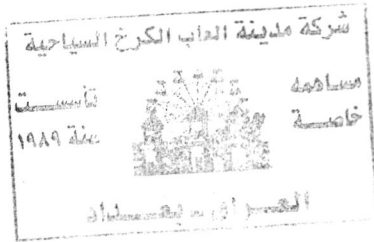 شركة مدينة العاب الكرخ السياحية
مساهمه
خاصة
تأسست
سنة ١٩٨٩
العراق - بغداد